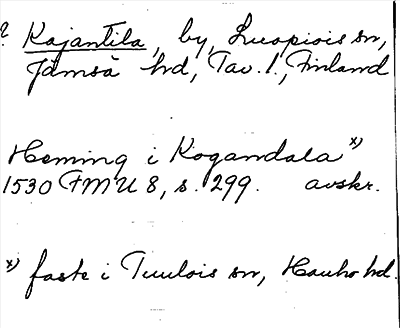 ? Kajantila, by, Luopiois sn,
Jämsä hd, Tav. l., Finland
Heming i Kogandala x)
1530 FMU 8, s. 299. avskr.
x) faste i Tuulois sn, Hauho hd.